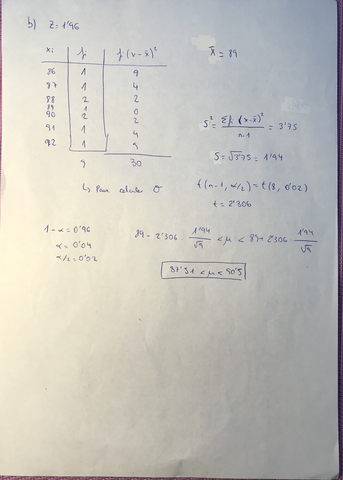 b) Z = 1'96
xi fi f(x-x̄)² x̄ = 89
86 1 9
87 1 4
88 2 2
89 1 0
90 2 2
91 1 4
92 1 9
9 30
S² = Σf·(x-x̄)² / n-1 = 3'75
S = √3'75 = 1'94
↳ Para calcular σ
t(n-1, α/2) = t(8, 0'02)
t = 2'306
1-α = 0'96
α = 0'04
α/2 = 0'02
89 - 2'306 · 1'94/√9 < μ < 89 + 2'306 · 1'94/√9
87'51 < μ < 90'5